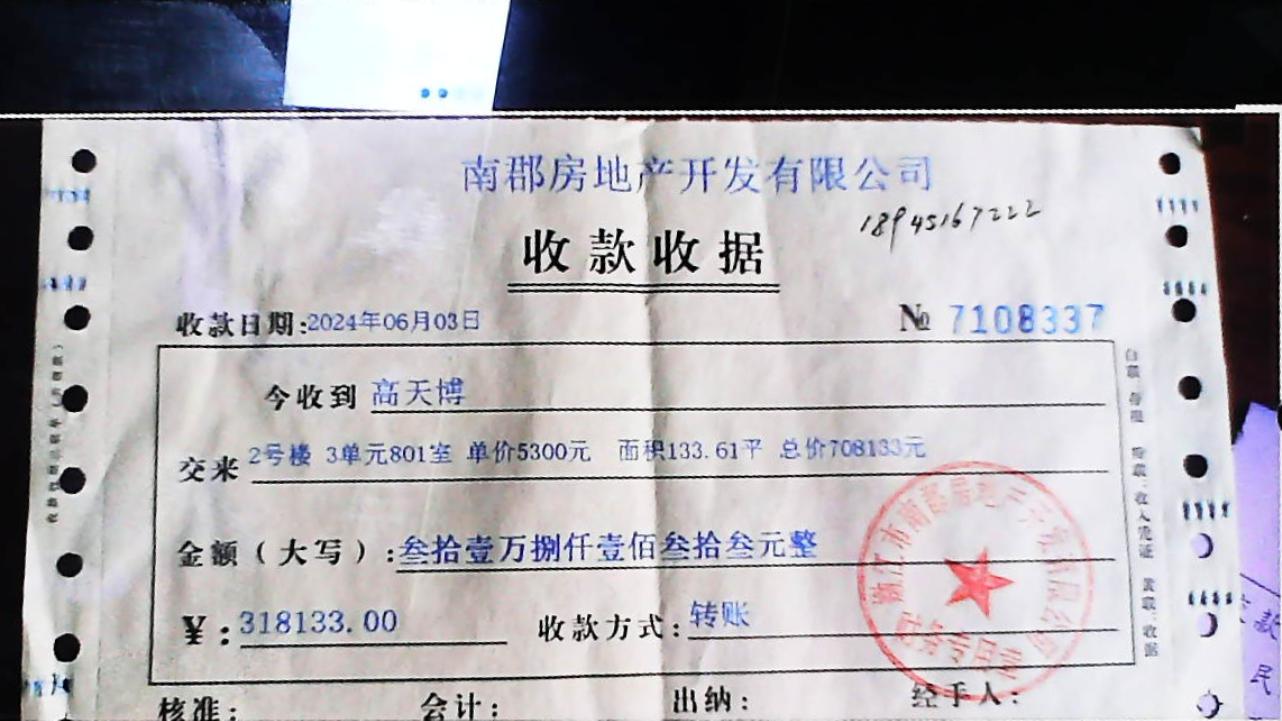 南郡房地产开发有限公司
18945167222
收款收据
收款日期:2024年06月03日
№ 7108337
今收到 高天博
交来 2号楼 3单元801室 单价5300元 面积133.61平 总价708133元
金额（大写）:叁拾壹万捌仟壹佰叁拾叁元整
¥:318133.00 收款方式:转账
核准: 会计: 出纳: 经手人:
款
民